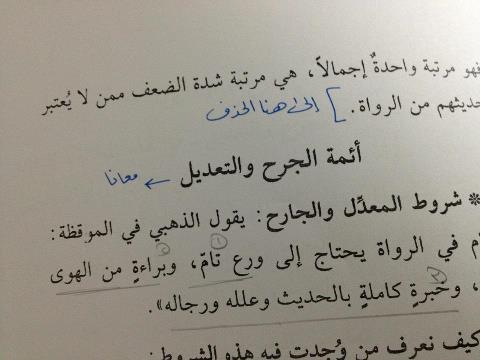 فهو مرتبة واحدةٌ إجمالاً، هي مرتبة شدة الضعف ممن لا يُعتبر
حديثهم من الرواة. ] إلى هنا الحذف
أئمة الجرح والتعديل ← معانا
* شروط المعدِّل والجارح: يقول الذهبي في الموقظة:
في الرواة يحتاج إلى ورعٍ تامّ، وبراءةٍ من الهوى
، وخبرةٍ كاملةٍ بالحديث وعلله ورجاله».
كيف نعرف من وُجدت فيه هذه الشروط: